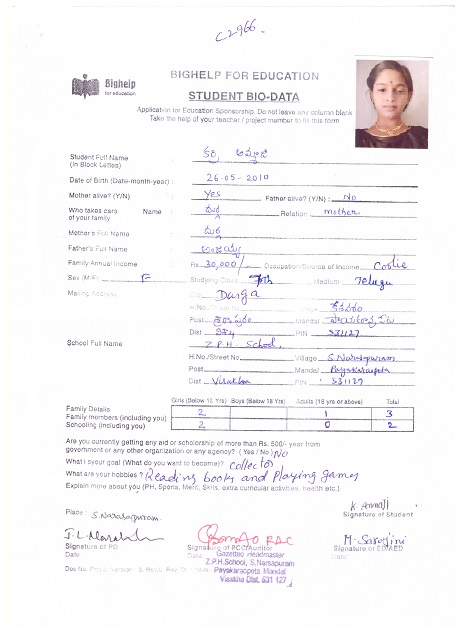 C2966.
Bighelp
for education
BIGHELP FOR EDUCATION
STUDENT BIO-DATA
Application for Education Sponsorship. Do not leave any column blank
Take the help of your teacher / project member to fill this form
Student Full Name
(In Block Letters)
Date of Birth (Date-month-year) : 26-05-2010
Mother alive? (Y/N) : Yes Father alive? (Y/N) : No
Who takes care Name : దుర్గ Relation : mother
of your family
Mother's Full Name : దుర్గ
Father's Full Name
Family Annual Income : Rs. 30,000/- Occupation/Source of Income Coolie
Sex (M/F) F Studying Class 7th Medium Telugu
Mailing Address Durga
H.No./Street No. Village
Post Mandal
Dist PIN 531127
School Full Name : Z.P.H. School,
H.No./Street No. Village S.Narsapuram
Post Mandal Payakaraopeta
Dist Visakha PIN : 531127
Girls (Below 18 Yrs) Boys (Below 18 Yrs) Adults (18 yrs or above) Total
Family Details
Family members (including you) 2 1 3
Schooling (including you) 2 0 2
Are you currently getting any aid or scholarship of more than Rs. 500/-year from
government or any other organization or any agency? (Yes / No) No
What is your goal (What do you want to become)? collector
What are your hobbies? Reading books and Playing games
Explain more about you (PH, Sports, Merit, Skills, extra curricular activities, health etc.)
Place : S.Narasapuram.
Signature of Student
Signature of PD Signature of PCC/Auditor Signature of ED/AED
Date: Date: Date:
Gazetted Headmaster
Z.P.H.School, S.Narsapuram
Payakaraopeta Mandal
Visakha Dist. 531 127